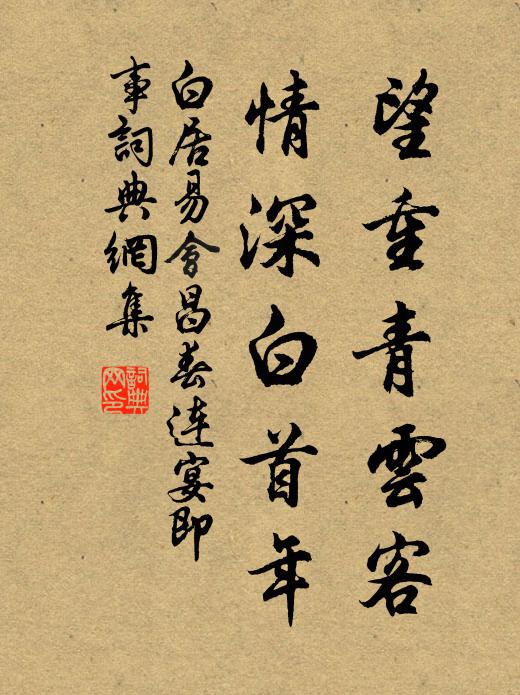 望重青雲客
情深白首年
白居易會昌春連宴即
事詞典網集
詞典
网印